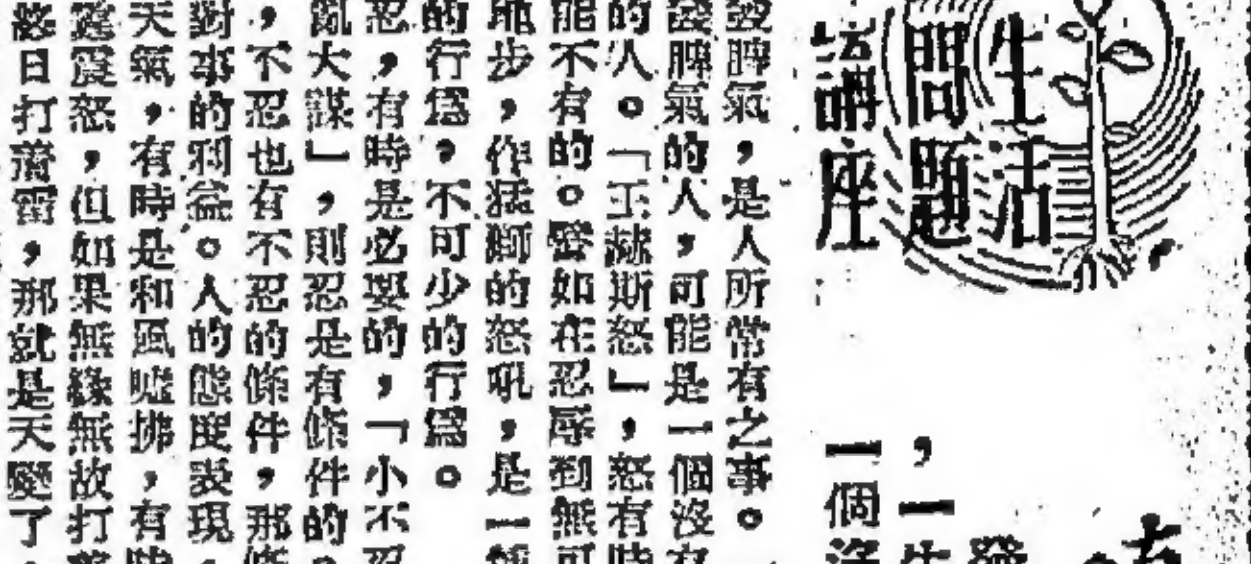 生活
問題
講座
，一
一個
發脾氣，是人所常有之事。
發脾氣的人，可能是一個沒有
的人。「王赫斯怒」，怒有時
能不有的。譬如在忍辱到無可
地步，作猛獅的怒吼，是一種
的行爲，不可少的行爲。
忍，有時是必要的，「小不忍
亂大謀」，則忍是有條件的。
，不忍也有不忍的條件，那條
對事的利益。人的態度表現，
天氣，有時是和風噓拂，有時
霆震怒，但如果無緣無故打
日打落雷，那就是天變了